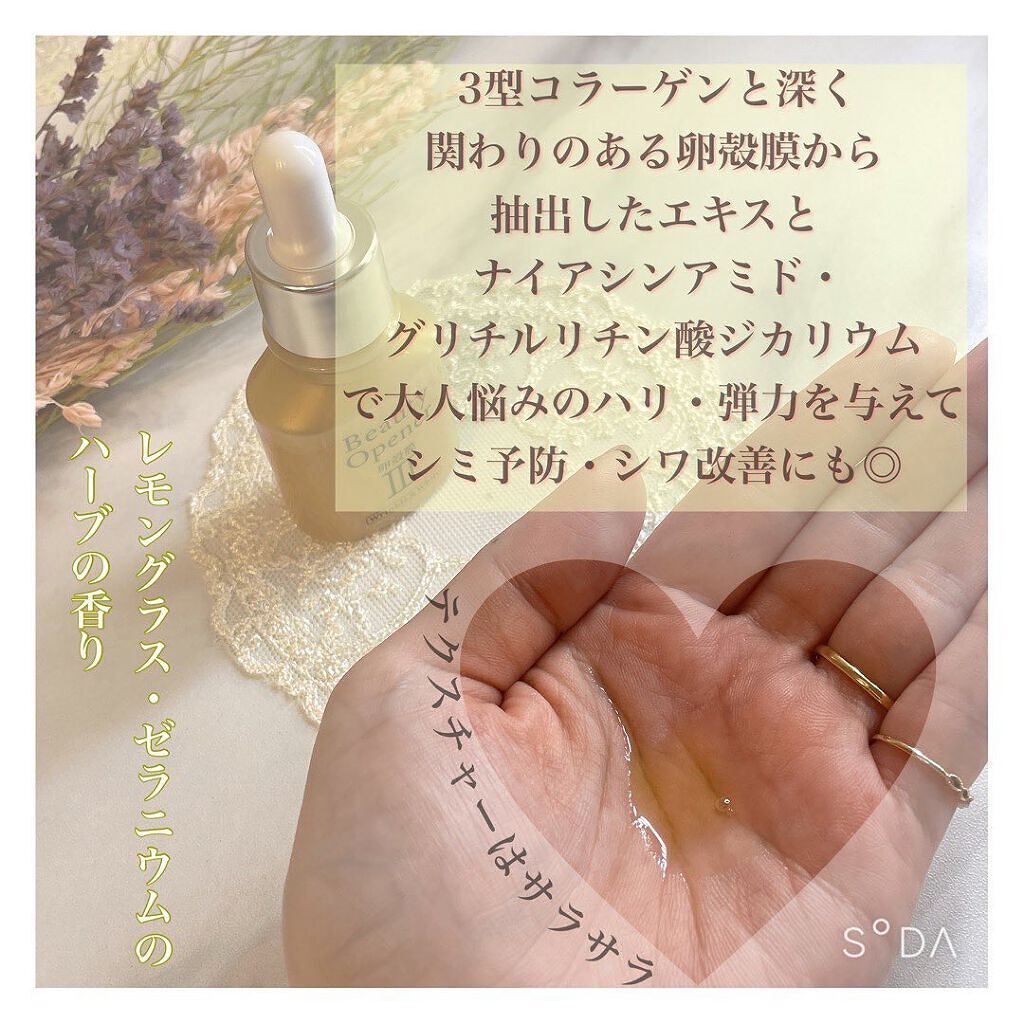 3型コラーゲンと深く
関わりのある卵殻膜から
抽出したエキスと
ナイアシンアミド・
グリチルリチン酸ジカリウム
で大人悩みのハリ・弾力を与えて
シミ予防・シワ改善にも◎
レモングラス・ゼラニウムの
ハーブの香り
Beauty
Opener
卵殻膜
II
テクスチャーはサラサラ
SODA